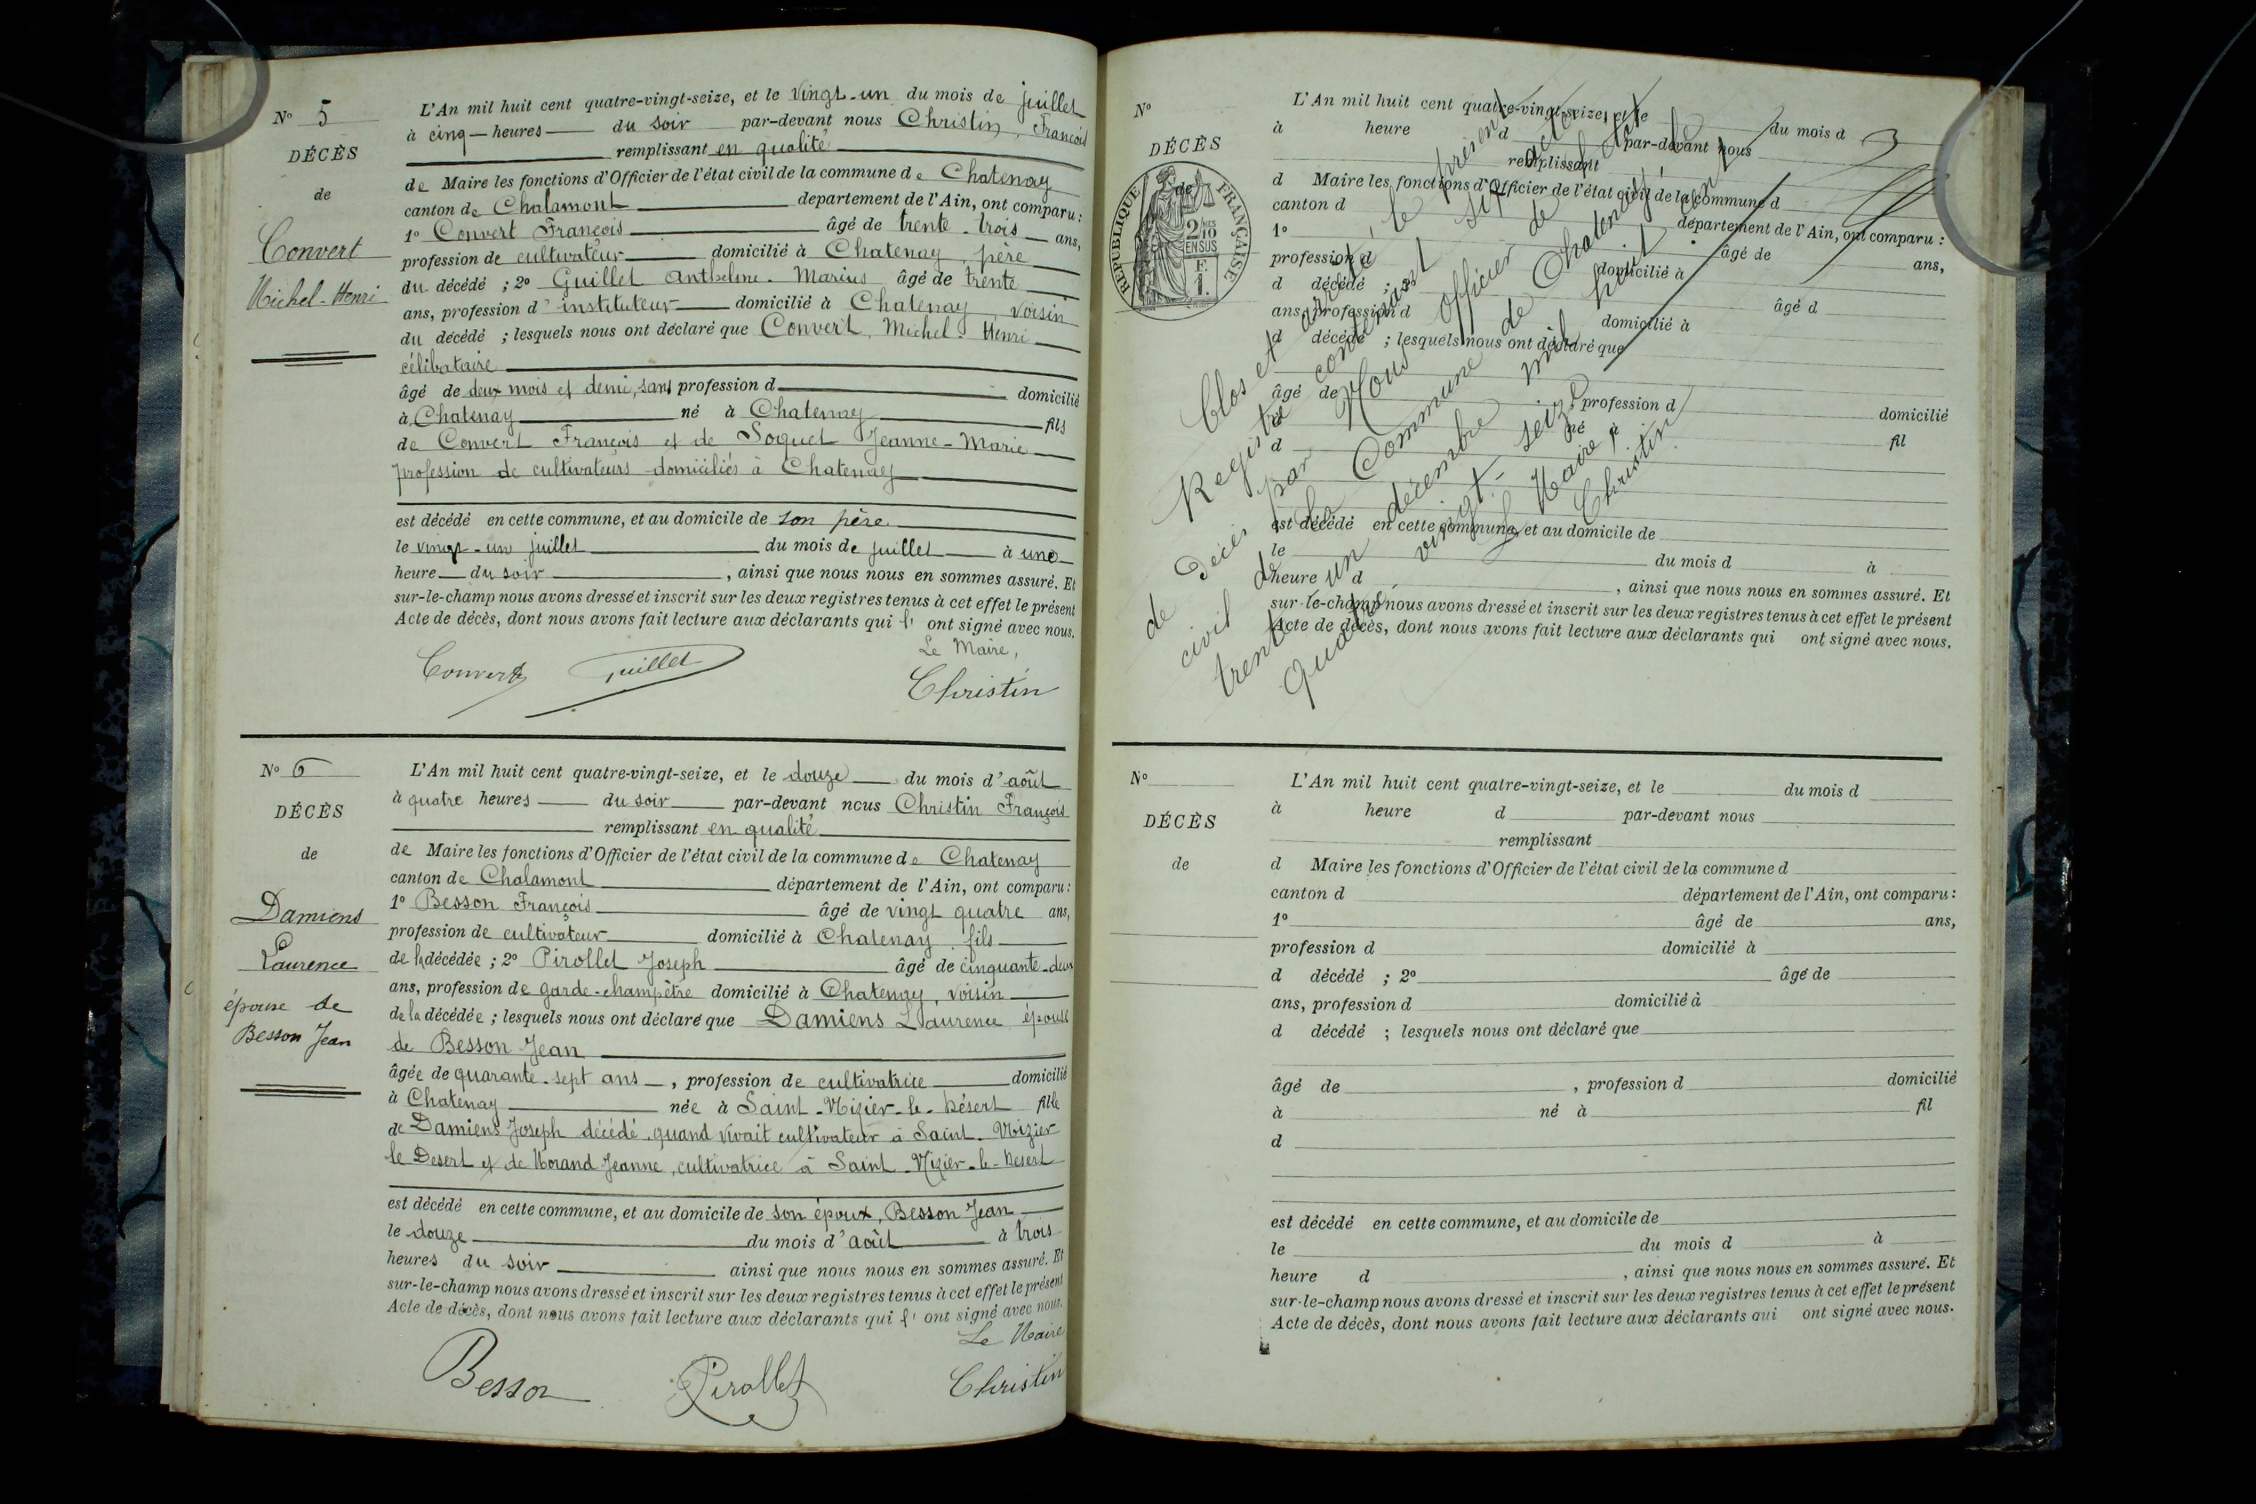 N° 5
DÉCÈS
de
Convert
Michel-Henri
L'An mil huit cent quatre-vingt-seize, et le vingt-un du mois de juillet
à cinq heures du soir par-devant nous Christin, François
remplissant en qualité
de Maire les fonctions d'Officier de l'état civil de la commune de Chatenay
canton de Chalamont département de l'Ain, ont comparu :
1° Convert François âgé de trente-trois ans,
profession de cultivateur domicilié à Chatenay, père
du décédé ; 2° Guillet Anthelme-Marius âgé de trente
ans, profession d'instituteur domicilié à Chatenay, voisin
du décédé ; lesquels nous ont déclaré que Convert, Michel-Henri
célibataire
âgé de deux mois et demi, sans profession d domicilié
à Chatenay né à Chatenay fils
de Convert François et de Soquet Jeanne-Marie
profession de cultivateurs domiciliés à Chatenay
est décédé en cette commune, et au domicile de son père
le vingt-un juillet du mois de juillet à une
heure du soir , ainsi que nous nous en sommes assuré. Et
sur-le-champ nous avons dressé et inscrit sur les deux registres tenus à cet effet le présent
Acte de décès, dont nous avons fait lecture aux déclarants qui l' ont signé avec nous.
Le Maire,
Convert Guillet Christin
N° 6
DÉCÈS
de
Damiens
Laurence
épouse de
Besson Jean
L'An mil huit cent quatre-vingt-seize, et le douze du mois d'août
à quatre heures du soir par-devant nous Christin François
remplissant en qualité
de Maire les fonctions d'Officier de l'état civil de la commune de Chatenay
canton de Chalamont département de l'Ain, ont comparu :
1° Besson François âgé de vingt quatre ans,
profession de cultivateur domicilié à Chatenay, fils
de la décédée ; 2° Pirollet Joseph âgé de cinquante-deux
ans, profession de garde-champêtre domicilié à Chatenay, voisin
de la décédée ; lesquels nous ont déclaré que Damiens Laurence épouse
de Besson Jean
âgée de quarante-sept ans , profession de cultivatrice domicilié
à Chatenay née à Saint-Nizier-le-Désert fille
de Damiens Joseph décédé quand vivait cultivateur à Saint-Nizier
le Desert et de Morand Jeanne, cultivatrice à Saint-Nizier-le-Desert
est décédé en cette commune, et au domicile de son époux, Besson Jean
le douze du mois d'août à trois
heures du soir ainsi que nous nous en sommes assuré. Et
sur-le-champ nous avons dressé et inscrit sur les deux registres tenus à cet effet le présent
Acte de décès, dont nous avons fait lecture aux déclarants qui l' ont signé avec nous.
Le Maire
Besson Pirollet Christin
N°
DÉCÈS
de
RÉPUBLIQUE FRANÇAISE
2/10 EN SUS
F. 1.
L'An mil huit cent quatre-vingt-seize, et le du mois d
à heure d par-devant nous
remplissant
d Maire les fonctions d'Officier de l'état civil de la commune d
canton d département de l'Ain, ont comparu :
1° âgé de ans,
profession d domicilié à
d décédé ; âgé d
ans, profession d domicilié à
d décédé ; lesquels nous ont déclaré que
âgé de , profession d domicilié
né à fil
d
est décédé en cette commune, et au domicile de
le du mois d à
heure d , ainsi que nous nous en sommes assuré. Et
sur-le-champ nous avons dressé et inscrit sur les deux registres tenus à cet effet le présent
Acte de décès, dont nous avons fait lecture aux déclarants qui ont signé avec nous.
Clos et arrêté le présent
Registre contenant six actes
de Décès par Nous officier de l'état
civil de la Commune de Chatenay, le
trente un décembre mil huit cent
quatre vingt-seize
Le Maire,
Christin
N°
DÉCÈS
de
L'An mil huit cent quatre-vingt-seize, et le du mois d
à heure d par-devant nous
remplissant
d Maire les fonctions d'Officier de l'état civil de la commune d
canton d département de l'Ain, ont comparu :
1° âgé de ans,
profession d domicilié à
d décédé ; 2° âgé de
ans, profession d domicilié à
d décédé ; lesquels nous ont déclaré que
âgé de , profession d domicilié
à né à fil
d
est décédé en cette commune, et au domicile de
le du mois d à
heure d , ainsi que nous nous en sommes assuré. Et
sur-le-champ nous avons dressé et inscrit sur les deux registres tenus à cet effet le présent
Acte de décès, dont nous avons fait lecture aux déclarants qui ont signé avec nous.